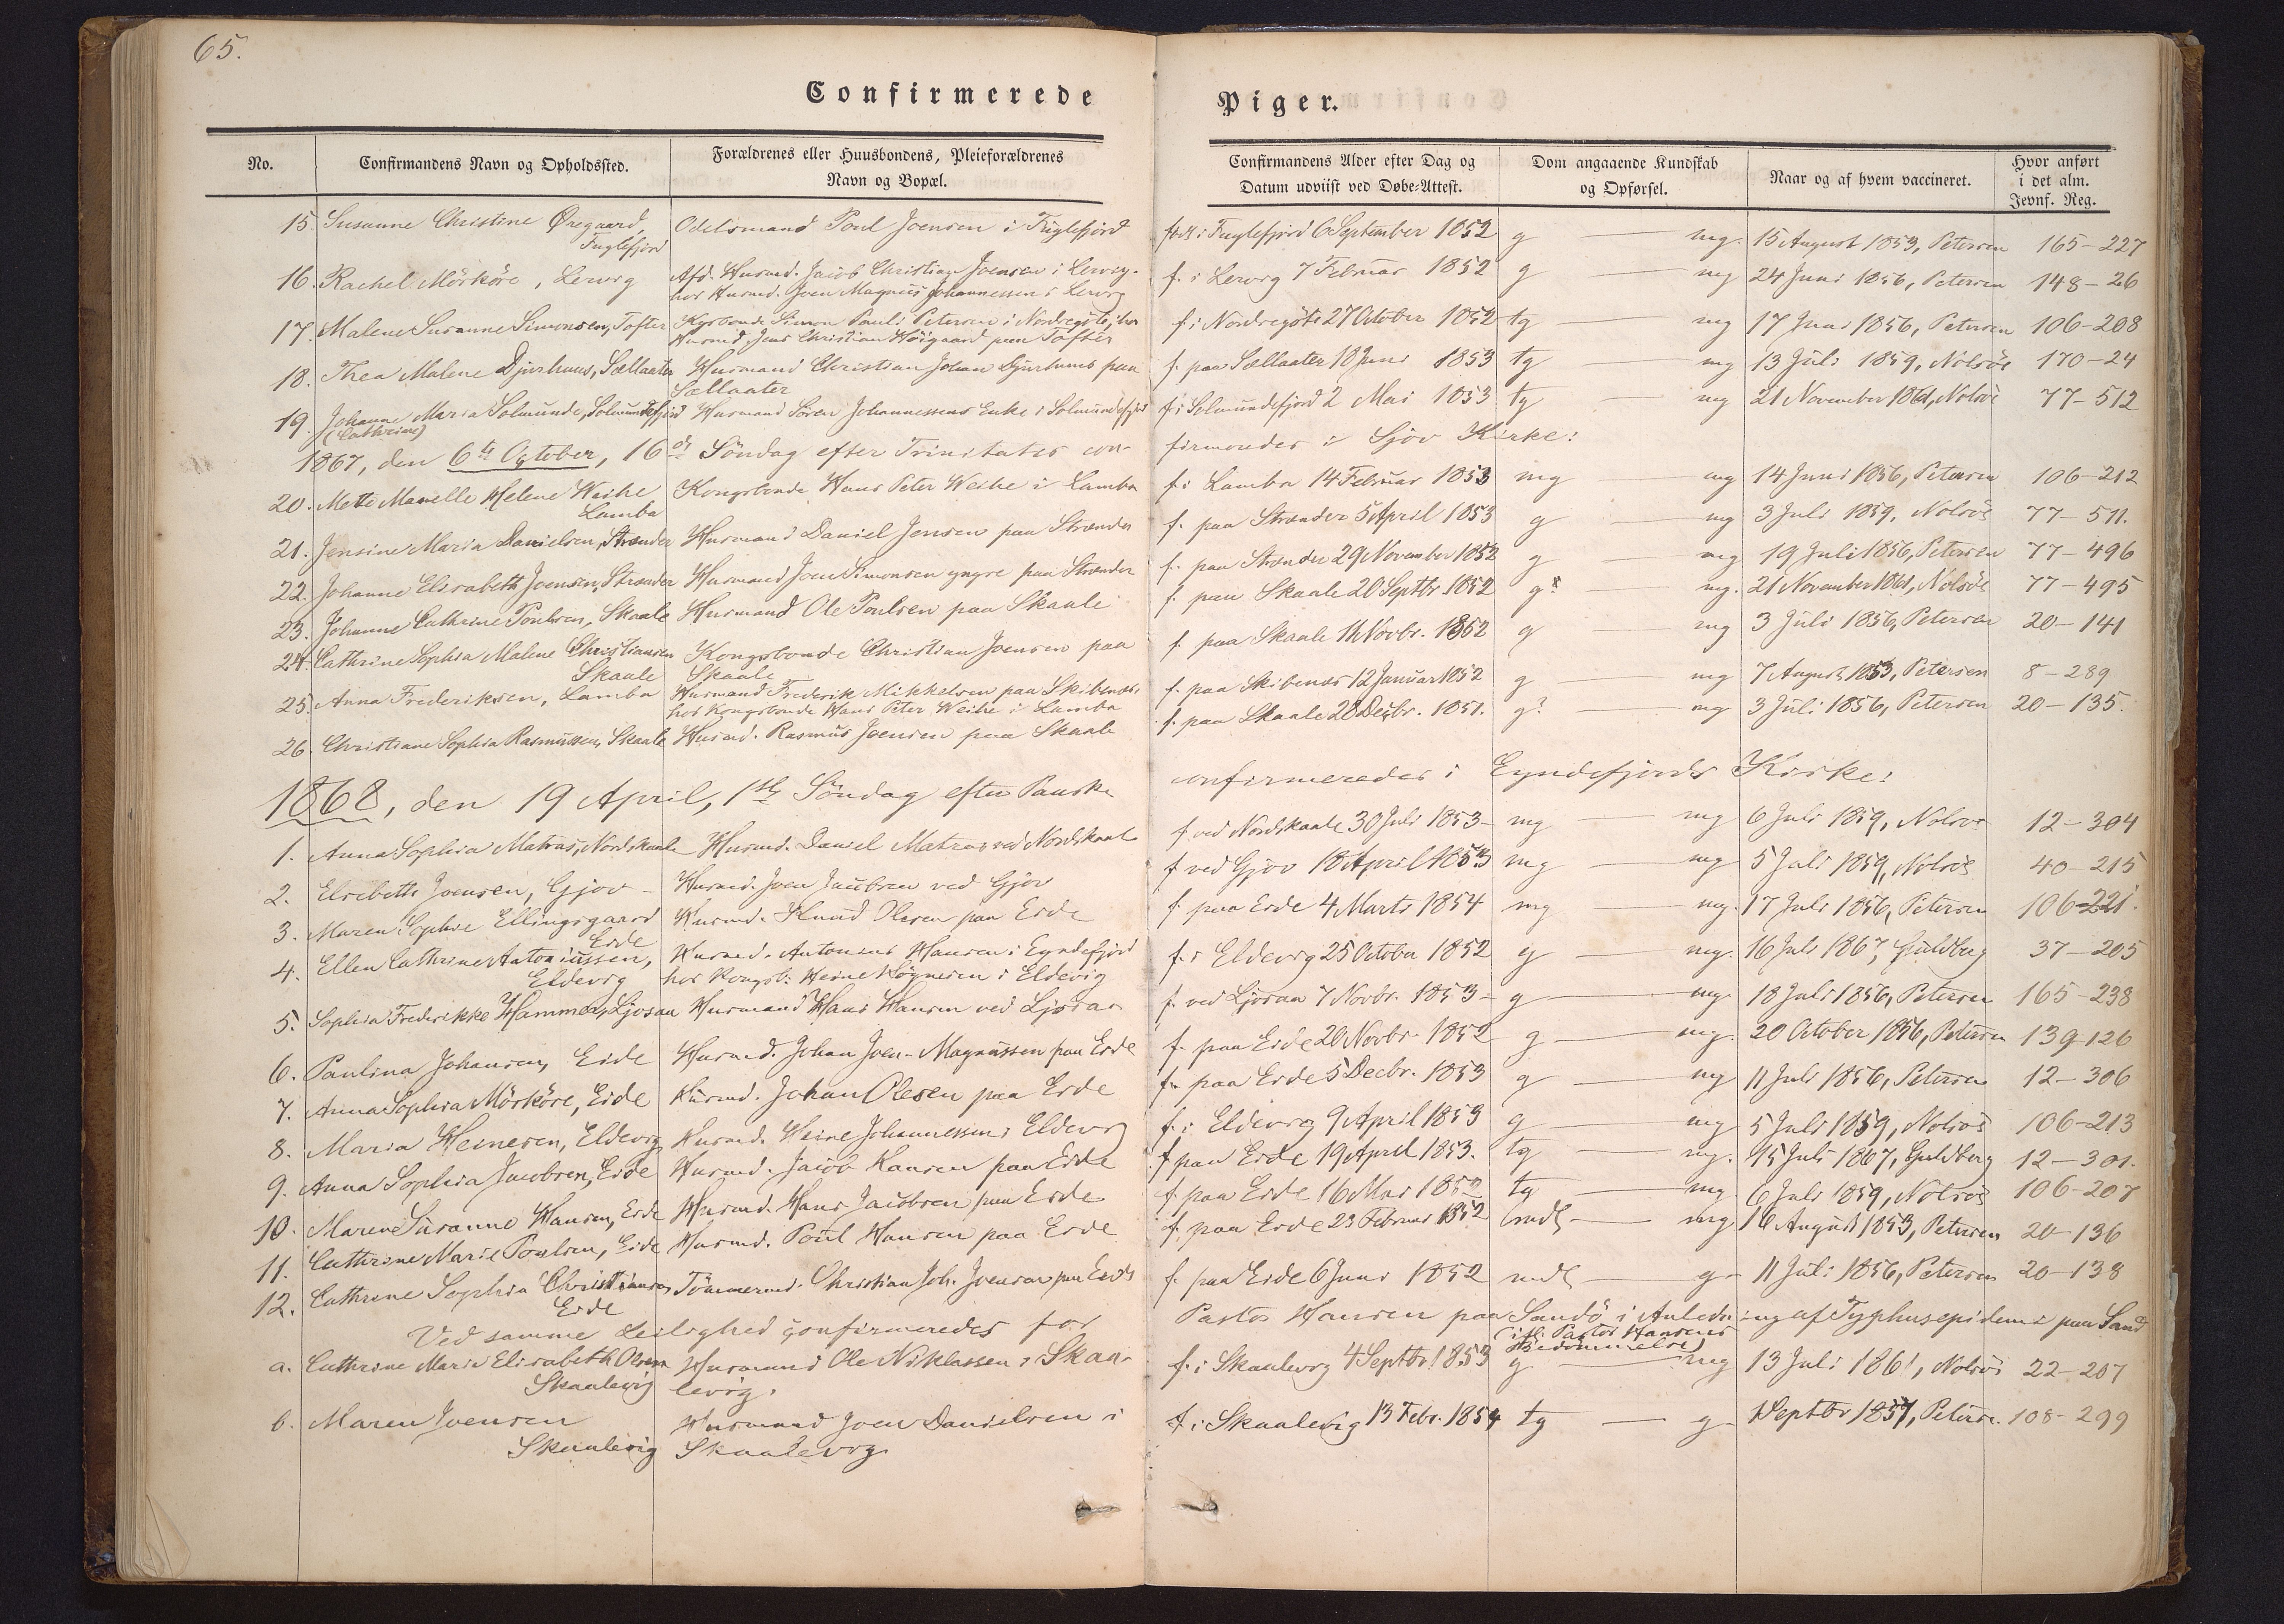 65.
Confirmerede Piger.
No. Confirmandens Navn og Opholdssted. Forældrenes eller Huusbondens, Pleieforældrenes Navn og Bopæl. Confirmandens Alder efter Dag og Datum udviist ved Døbe-Attest. Dom angaaende Kundskab og Opførsel. Naar og af hvem vaccineret. Hvor anført i det alm. Jevnf. Reg.
15. Susanne Christine Øregaard, Odelsmand Poul Joensen i Fuglefjord født i Fuglefjord 6 September 1852 g — mg. 15 August 1853, Petersen 165-227
Fuglefjord
16. Rachel Mörköre, Lervig Afd. Husmd. Jacob Christian Joensen i Lervig. f. i Lervig 7 Februar 1852 g — mg 24 Juni 1856, Petersen 148-26
hos Husmd. Joen Magnus Johannessen i Lervig
17. Malene Susanne Simonsen, Tofter Kgsbonde Simon Pauli Petersen i Nordregöte, hos f. i Nordregöte 27 October 1852 tg — mg 17 Juni 1856, Petersen 106-208
Husmd. Jens Christian Höigaard paa Tofter
18. Thea Malene Djurhuus, Sællaater Husmand Christian Johan Djurhuus paa f. paa Sællaater 18 Juni 1853 tg — mg 13 Juli 1859, Nolsöe 170-24
Sællaater
19. Johanne Maria Solmunde, Solmundefjord Husmand Sören Johannessens Enke i Solmundefjord f. i Solmundefjord 2 Mai 1853 tg — mg 21 November 1861, Nolsöe 77-512
(Cathrine)
1867, den 6te October, 16de Söndag efter Trinitatis confirmeredes i Sjov Kirke:
20. Mette Marielle Helene Weihe Kongsbonde Hans Peter Weihe i Lamba f. i Lamba 14 Februar 1853 mg — mg 14 Juni 1856, Petersen 106-212
Lamba
21. Jensine Maria Danielsen, Strænder Husmand Daniel Jensen paa Strænder f. paa Strænder 5 April 1853 g — mg 3 Juli 1859, Nolsöe 77-511.
22. Johanne Elisabeth Joensen, Strænder Husmand Joen Simonsen yngre paa Strænder f. paa Strænder 29 November 1852 g — mg 19 Juli 1856, Petersen 77-496
23. Johanne Cathrine Poulsen, Skaale Husmand Ole Poulsen paa Skaale f. paa Skaale 20 Septbr 1852 g? — mg. 21 November 1861, Nolsöe 77-495
24. Cathrine Sophia Malene Christiansen Kongsbonde Christian Joensen paa f. paa Skaale 11 Novbr. 1852 g — mg 3 Juli 1856, Petersen 20-141
Skaale Skaale
25. Anna Frederiksen, Lamba Husmand Frederik Mikkelsen paa Skibenæs f. paa Skibenæs 12 Januar 1852 g — mg 7 August 1853, Petersen 8-289
hos Kongsbonde Hans Peter Weihe i Lamba
26. Christiane Sophia Rasmussen, Skaale Husmd. Rasmus Joensen paa Skaale f. paa Skaale 28 Decbr. 1851. g? — mg 3 Juli 1856, Petersen 20-135.
1868, den 19 April, 1ste Söndag efter Paaske confirmeredes i Eyndefjords Kirke:
1. Anna Sophia Matras, Nordskaale Husmd. Daniel Matras ved Nordskaale f. ved Nordskaale 30 Juli 1853 – mg — mg 6 Juli 1859, Nolsöe 12-304
2. Elsebeth Joensen, Gjov – Husmd. Joen Jacobsen ved Gjov f. ved Gjov 18 April 1853 mg — mg 5 Juli 1859, Nolsöe 40-215
3. Maren Sophie Ellingsgaard Husmd. Knud Olesen paa Eide f. paa Eide 4 Marts 1854 mg — mg. 17 Juli 1856, Petersen 106-221.
Eide
4. Ellen Cathrine Antoniussen, Husmd. Antonius Hansen i Eyndefjord f. i Eldevig 25 October 1852 g — mg. 16 Juli 1867, Guldberg 37-205
Eldevig hos Kongsb. Heine Högnesen i Eldevig
5. Sophia Frederikke Hammer, Ljosaa Husmand Hans Hansen ved Ljosaa f. ved Ljosaa 7 Novbr. 1853 – g — mg 18 Juli 1856, Petersen 165-238
6. Paulina Johansen, Eide Husmd. Johan Joen-Magnussen paa Eide f. paa Eide 20 Novbr 1852 g — mg. 20 October 1856, Petersen 139-126
7. Anna Sophia Mörköre, Eide Husmd. Johan Olesen paa Eide f. paa Eide 5 Decbr. 1853 g — mg 11 Juli 1856, Petersen 12-306
8. Maria Heinesen, Eldevig Husmd. Heine Johannessen i Eldevig f. i Eldevig 9 April 1853 g — mg 5 Juli 1859, Nolsöe 106-213
9. Anna Sophia Jacobsen, Eide Husmd. Jacob Hansen paa Eide f. paa Eide 19 April 1853. tg — mg. 15 Juli 1867, Guldberg 12-301.
10. Maren Susanne Hansen, Eide Husmd. Hans Jacobsen paa Eide f. paa Eide 16 Mai 1852 tg — mg 6 Juli 1859, Nolsöe 106-207
11. Cathrine Marie Poulsen, Eide Husmd. Poul Hansen paa Eide f. paa Eide 23 Februar 1852 mdl — mg 16 August 1853, Petersen 20-136
12. Cathrine Sophia Christiansen Tömmermd. Christian Joh. Joensen paa Eide f. paa Eide 6 Juni 1852 mdl — g 11 Juli 1856, Petersen 20-138
Eide
Ved samme Leilighed confirmeredes for Pastor Hansen paa Sandö i Anledning af Typhusepidemi paa Sand
(ifl. Pastor Hansens Bedömmelse)
a. Cathrine Marie Elisabeth Olsen Husmand Ole Niklassen i Skaa- f. i Skaalevig 4 Septbr 1853 g — mg 13 Juli 1861, Nolsöe 22-207
Skaalevig levig.
b. Maren Joensen Husmand Joen Danielsen i f. i Skaalevig 13 Febr. 1854 tg — g 1 Septbr 1857, Petersen 108-299
Skaalevig Skaalevig